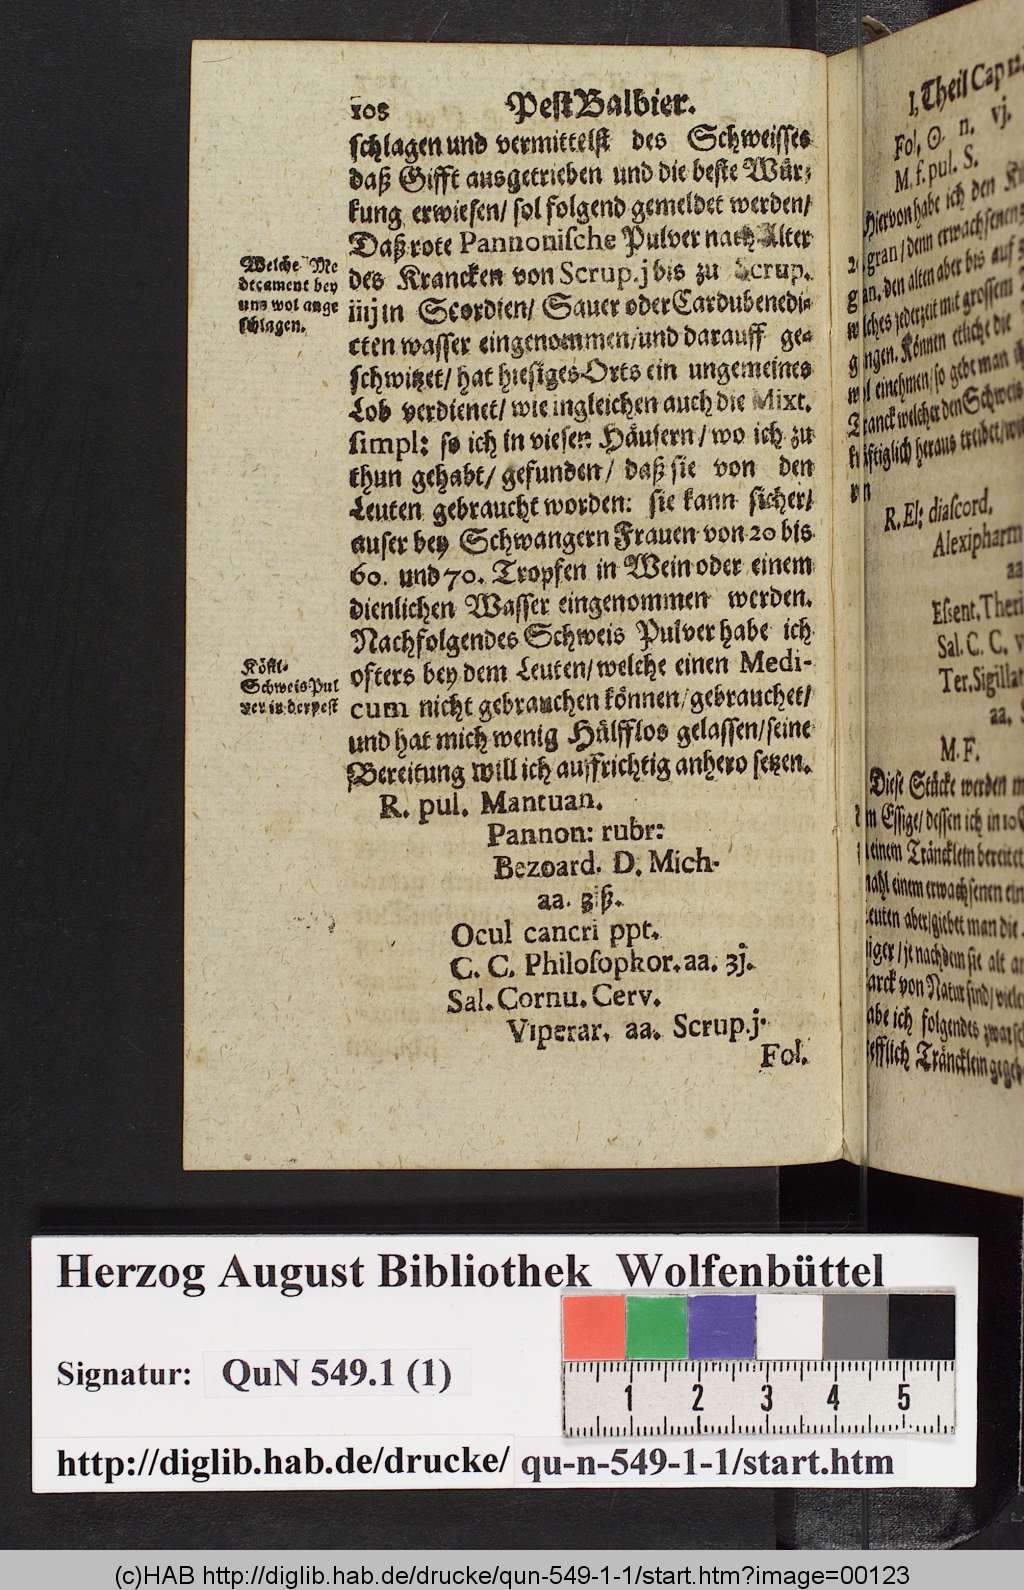 108 PestBalbier.
schlagen und vermittelst des Schweisses
daß Gifft ausgetrieben und die beste Wür-
kung erwiesen/ sol folgend gemeldet werden/
Daß rote Pannonische Pulver nach Alter
des Krancken von Scrup.j bis zu Scrup.
iiij in Scordien/ Sauer oder Cardubenedi-
cten wasser eingenommen/und darauff ge-
schwitzet/ hat hiesiges Orts ein ungemeines
Lob verdienet/ wie ingleichen auch die Mixt.
simpl: so ich in vielen Häusern/ wo ich zu
thun gehabt/ gefunden/ daß sie von den
Leuten gebraucht worden: sie kann sicher/
auser bey Schwangern Frauen von 20 bis
60. und 70. Tropfen in Wein oder einem
dienlichen Wasser eingenommen werden.
Nachfolgendes Schweis Pulver habe ich
ofters bey dem Leuten/welche einen Medi-
cum nicht gebrauchen können/gebrauchet/
und hat mich wenig Hülfflos gelassen/seine
Bereitung will ich auffrichtig anhero setzen.
R. pul. Mantuan.
Pannon: rubr:
Bezoard. D. Mich.
aa. ʒiß.
Ocul cancri ppt.
C. C. Philosopkor. aa. ʒj.
Sal. Cornu. Cerv.
Viperar. aa. Scrup.j.
Fol.
Welche Me
decament bey
uns wol ange
schlagen.
Köstl.
Schweis Pul
ver in der pest
I, Theil Cap
Fol. ☉. n. vj.
M. f. pul. S.
Hiervon habe ich den
gran/ denn erwachsenen
den alten aber bis auf
jederzeit mit grossem
Können etliche die
einehmen/so gebe man
welcher den Schweis
heraus treibet/
R. El: diascord.
Alexipharm
aa
Essent. Theri
Sal. C. C. v
Ter. Sigillat
aa.
M. F.
Diese Stücke werden
Essige/ dessen ich in 10
einem Träncklein bereitet
einem erwachsenen ein
aber/giebet man die
je nachdem sie alt
von Natur sind/
ich folgendes zwar
Träncklein
Herzog August Bibliothek Wolfenbüttel
Signatur: QuN 549.1 (1)
1 2 3 4 5
http://diglib.hab.de/drucke/ qu-n-549-1-1/start.htm
(c)HAB http://diglib.hab.de/drucke/qun-549-1-1/start.htm?image=00123